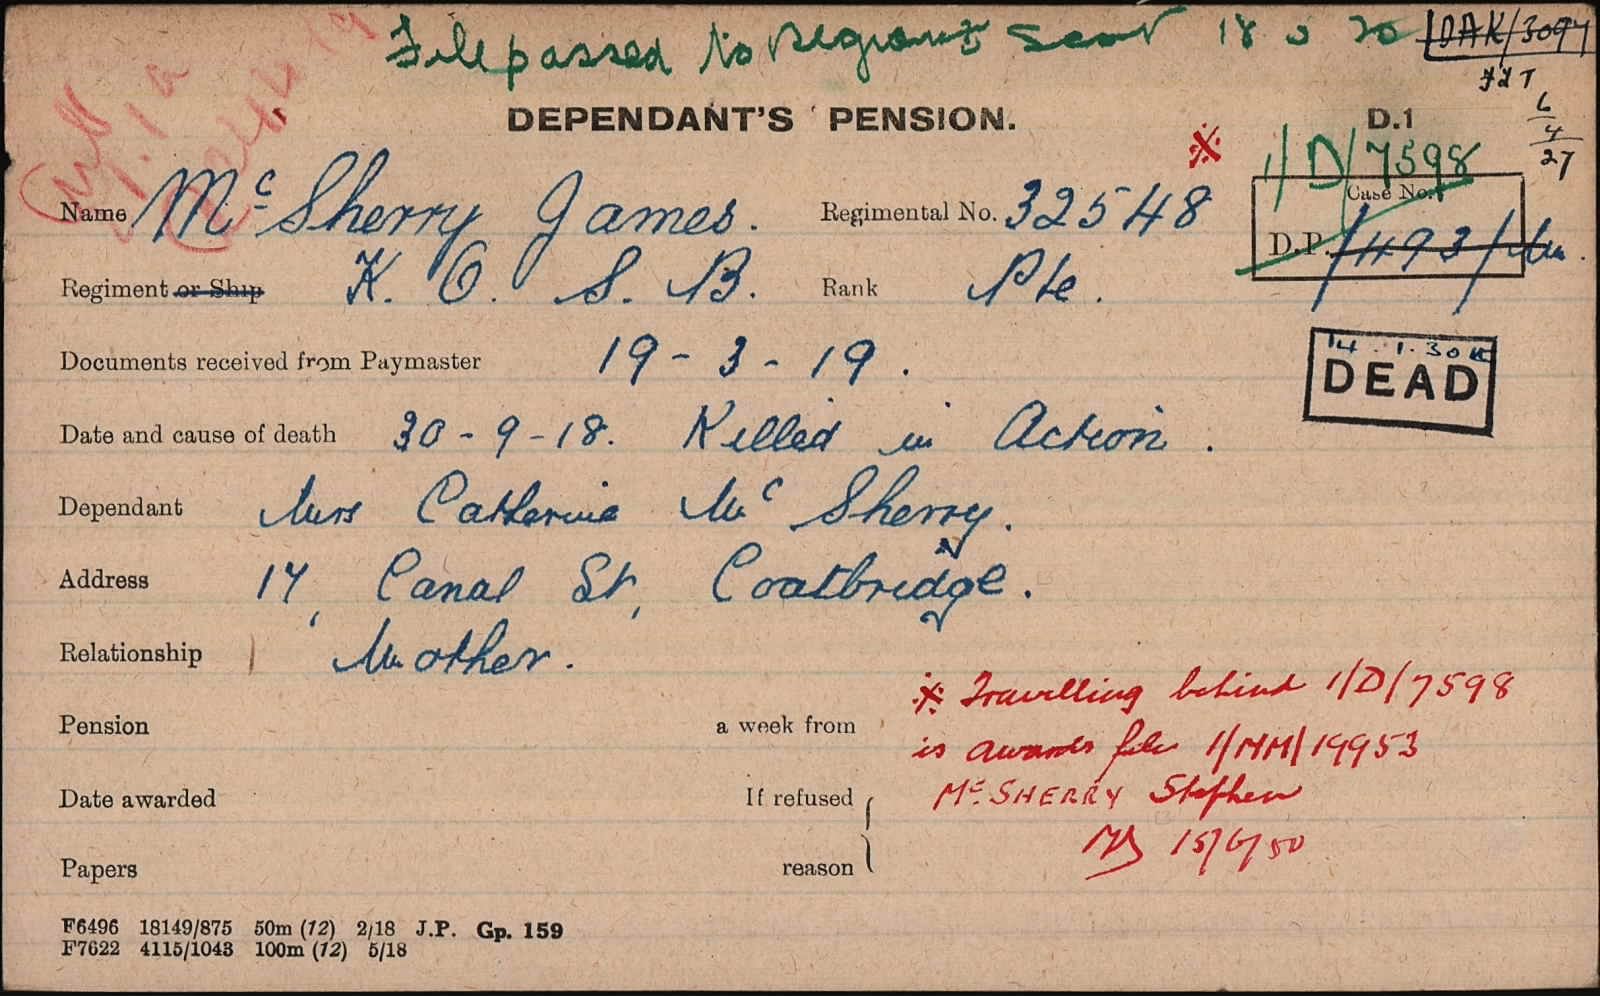 File passed to Regions Scot 18 5 20
DAK/3094
6
4
27
DEPENDANT'S PENSION. D.1
1/D/7598
Name McSherry James. Regimental No. 32548
Case No.
D.P. /1193/M.
Regiment or Ship K. O. S. B. Rank Pte.
Documents received from Paymaster 19-3-19.
14.1.30
DEAD
Date and cause of death 30-9-18. Killed in Action.
Dependant Mrs Catherine McSherry.
Address 17, Canal St, Coatbridge.
Relationship Mother.
※ Travelling behind 1/D/7598
Pension a week from
is awards file 1/MM/19953
Date awarded If refused
McSHERRY Stephen
15/6/50
Papers reason
F6496 18149/875 50m (12) 2/18 J.P. Gp. 159
F7622 4115/1043 100m (12) 5/18